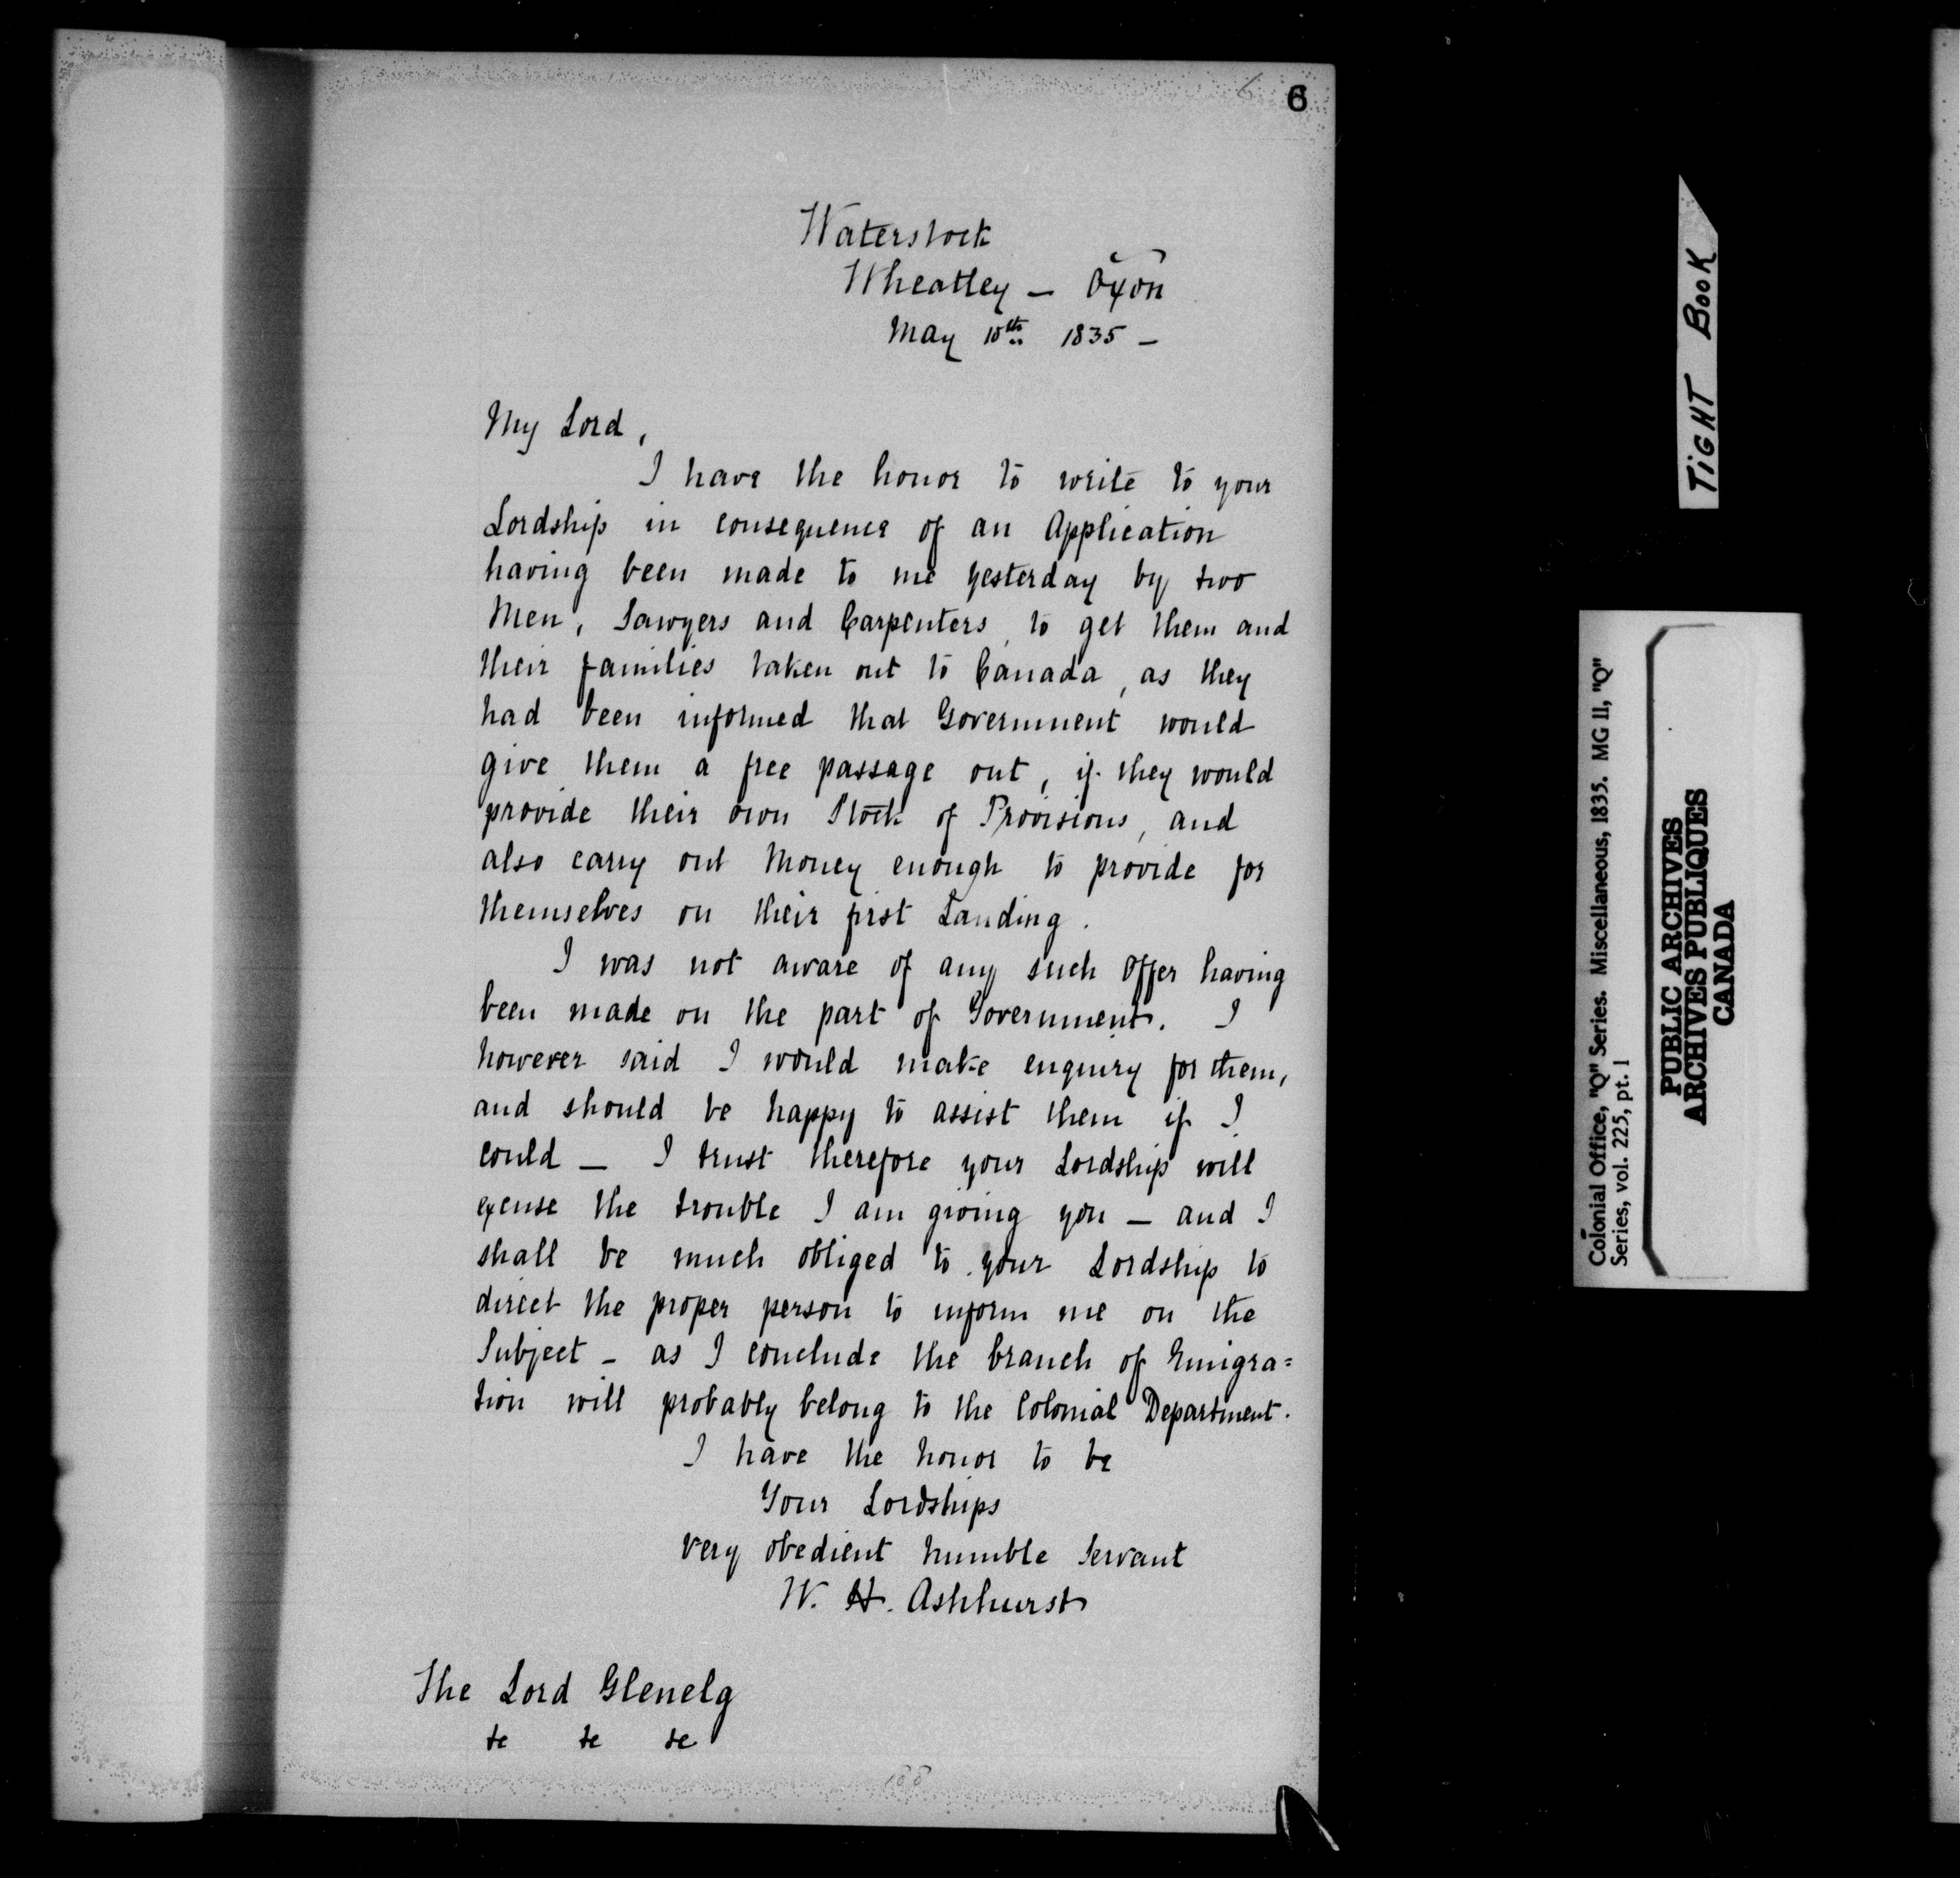 6
6
Waterstock
Wheatley — Oxon
May 10th 1835 —
My Lord,
I have the honor to write to your
Lordship in consequence of an Application
having been made to me yesterday by two
Men, Sawyers and Carpenters, to get them and
their families taken out to Canada, as they
had been informed that Government would
give them a free passage out, if they would
provide their own Stock of Provisions, and
also carry out Money enough to provide for
themselves on their first Landing.
I was not aware of any such offer having
been made on the part of Government. I
however said I would make enquiry for them,
and should be happy to assist them if I
could — I trust therefore your Lordship will
excuse the trouble I am giving you — and I
shall be much obliged to your Lordship to
direct the proper person to inform me on the
Subject — as I conclude the branch of Emigra=
tion will probably belong to the Colonial Department.
I have the honor to be
Your Lordships
very obedient humble Servant
W. H. Ashhurst
The Lord Glenelg
&c &c &c
TIGHT BOOK
Colonial Office, "Q" Series. Miscellaneous, 1835. MG 11, "Q"
Series, vol. 225, pt. 1
PUBLIC ARCHIVES
ARCHIVES PUBLIQUES
CANADA